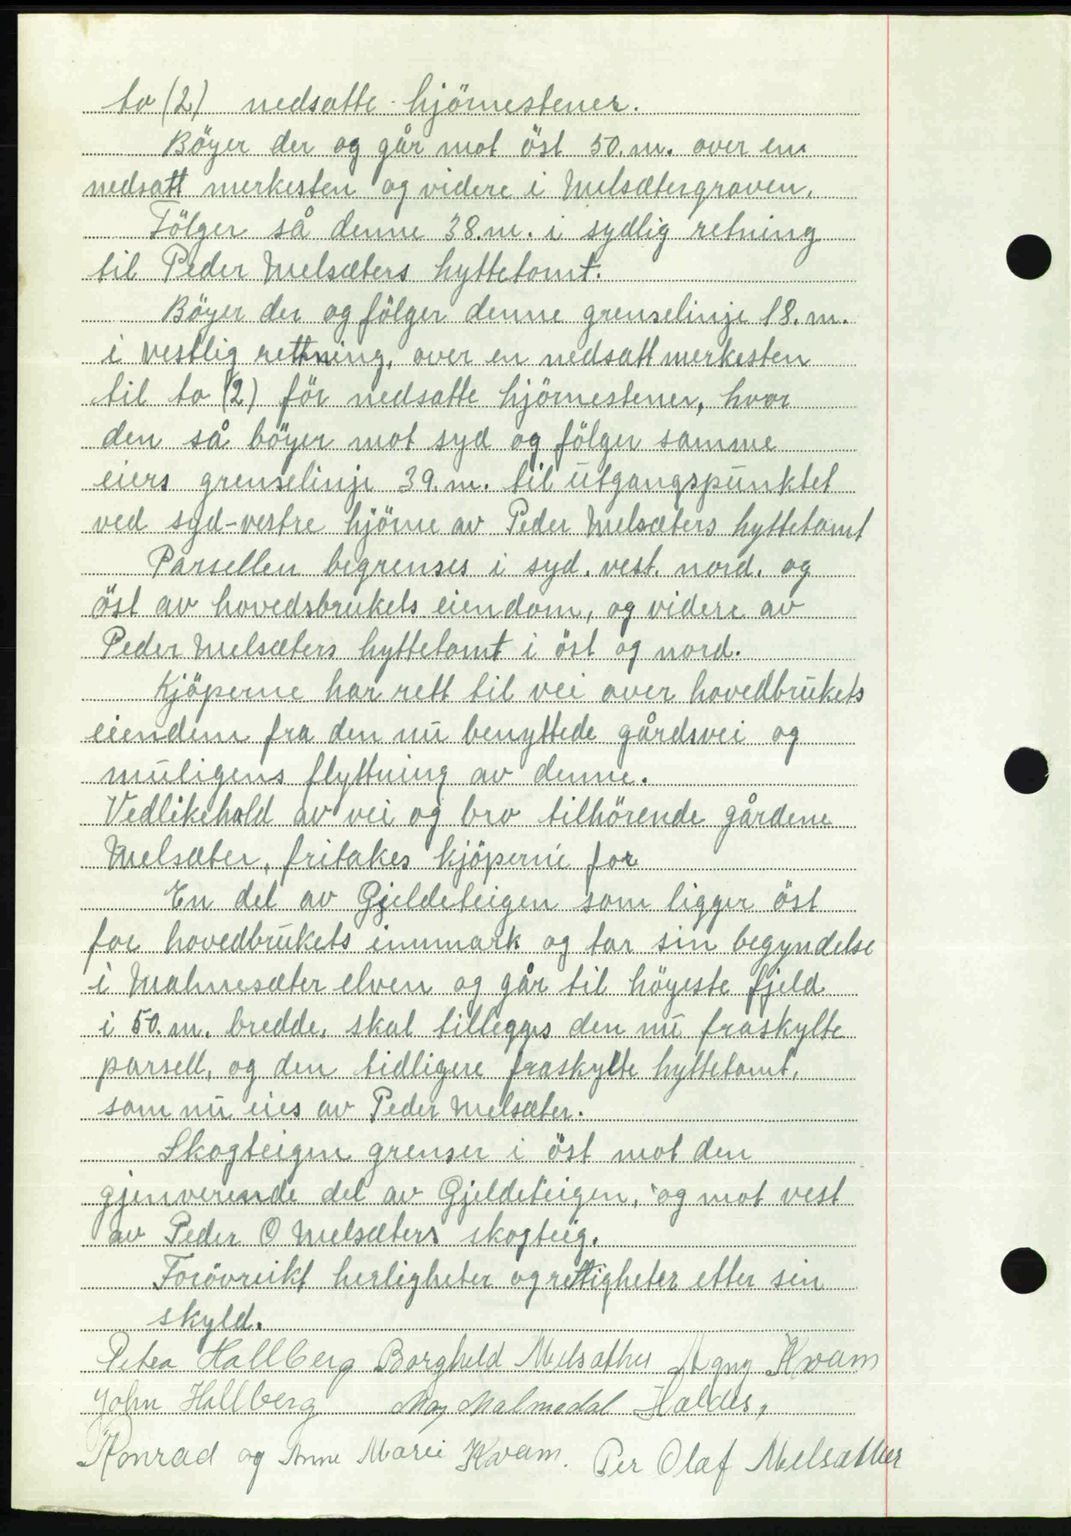 to (2) nedsatte hjörnestener.
Böyer der og går mot öst 50.m. over en
nedsatt merkesten og videre i Melsætergraven.
Fölger så denne 38.m. i sydlig retning
til Peder Melsæters hyttetomt.
Böyer der og fölger denne grenselinje 18.m.
i vestlig rettning, over en nedsatt merkesten
til to (2) för nedsatte hjörnestener, hvor
den så böyer mot syd og fölger samme
eiers grenselinje 39.m. til utgangspunktet
ved syd-vestre hjörne av Peder Melsæters hyttetomt
Parsellen begrenses i syd. vest. nord. og
öst av hovedsbrukets eiendom, og videre av
Peder Melsæters hyttetomt i öst og nord.
Kjöperne har rett til vei over hovedbrukets
eiendem fra den nu benyttede gårdsvei og
muligens flyttning av denne.
Vedlikehold av vei og bro tilhörende gårdene
Melsæter, fritakes kjöperne for
En del av Gjeldeteigen som ligger öst
for hovedbrukets innmark og tar sin begyndelse
i Malmesæter elven og går til höyeste fjeld
i 50.m. bredde, skal tillegges den nu fraskylte
parsell, og den tidligere fraskylte hyttetomt,
som nu eies av Peder Melsæter.
Skogteigen grenser i öst mot den
gjenverende del av Gjeldeteigen, og mot vest
av Peder O Melsæters skogteig.
Forövreikt herligheter og rettigheter etter sin
skyld.
Petra Hallberg Borghild Melsæther Agny Kvam
John Hallberg May Malmedal Haldis,
Konrad og Anne Marie Kvam. Per Olaf Melsæther